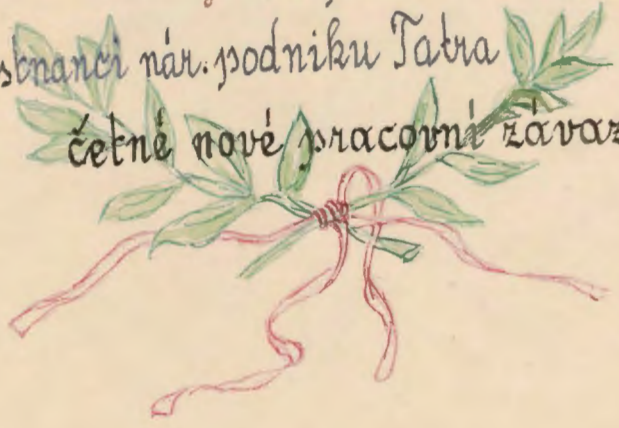 stnanci nár. podniku Tatra
četné nové pracovní závaz